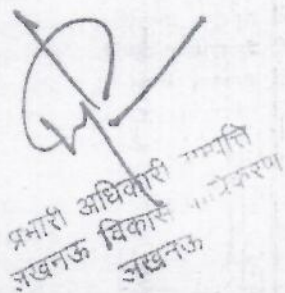 प्रभारी अधिकारी सम्पत्ति
लखनऊ विकास प्राधिकरण
लखनऊ